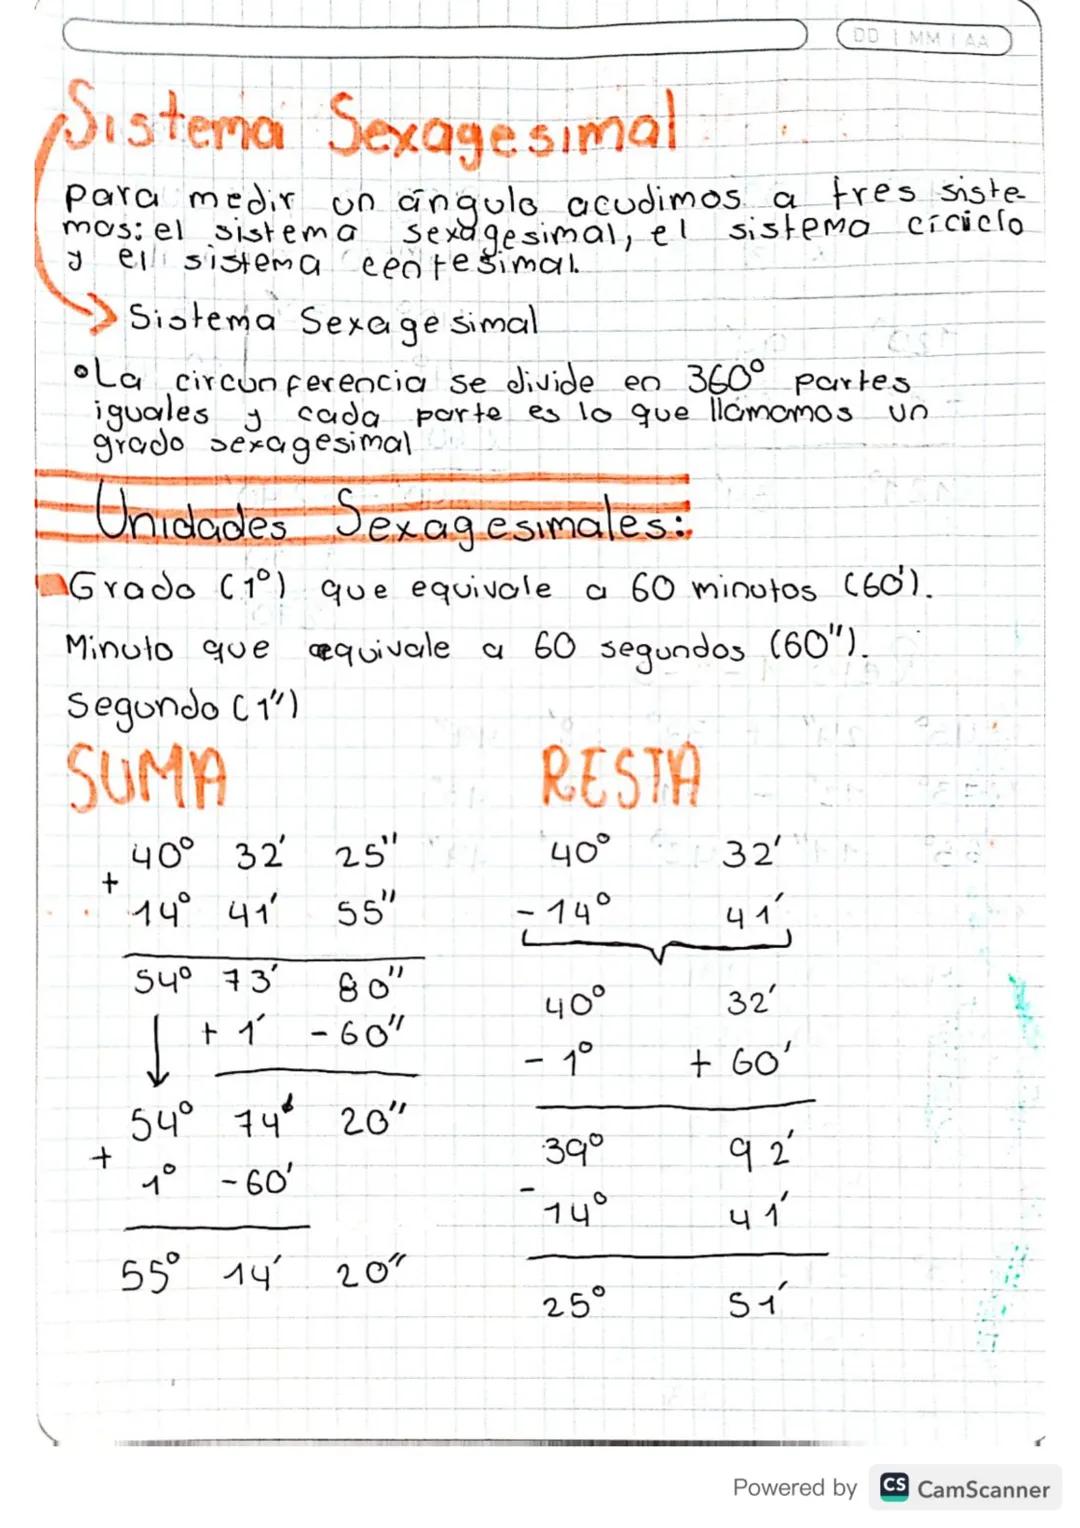 DD | MM | AA
Sistema Sexagesimal
para medir un ángulo acudimos a tres siste-
mas: el sistema sexagesimal, el sistema cíciclo
y el sistema centesimal.
Sistema Sexagesimal
•La circunferencia se divide en 360° partes
iguales y cada parte es lo que llámamos un
grado sexagesimal
Unidades Sexagesimales:
Grado (1°) que equivale a 60 minutos (60').
Minuto que equivale a 60 segundos (60").
Segundo (1")
SUMA RESTA
40° 32' 25" 40° 32'
+
14° 41' 55" - 14° 41'
54° 73' 80"
40° 32'
+ 1' - 60"
- 1° + 60'
54° 74' 20"
39° 92'
+
1° - 60'
-
14° 41'
55° 14' 20"
25° 51'
Powered by CS CamScanner